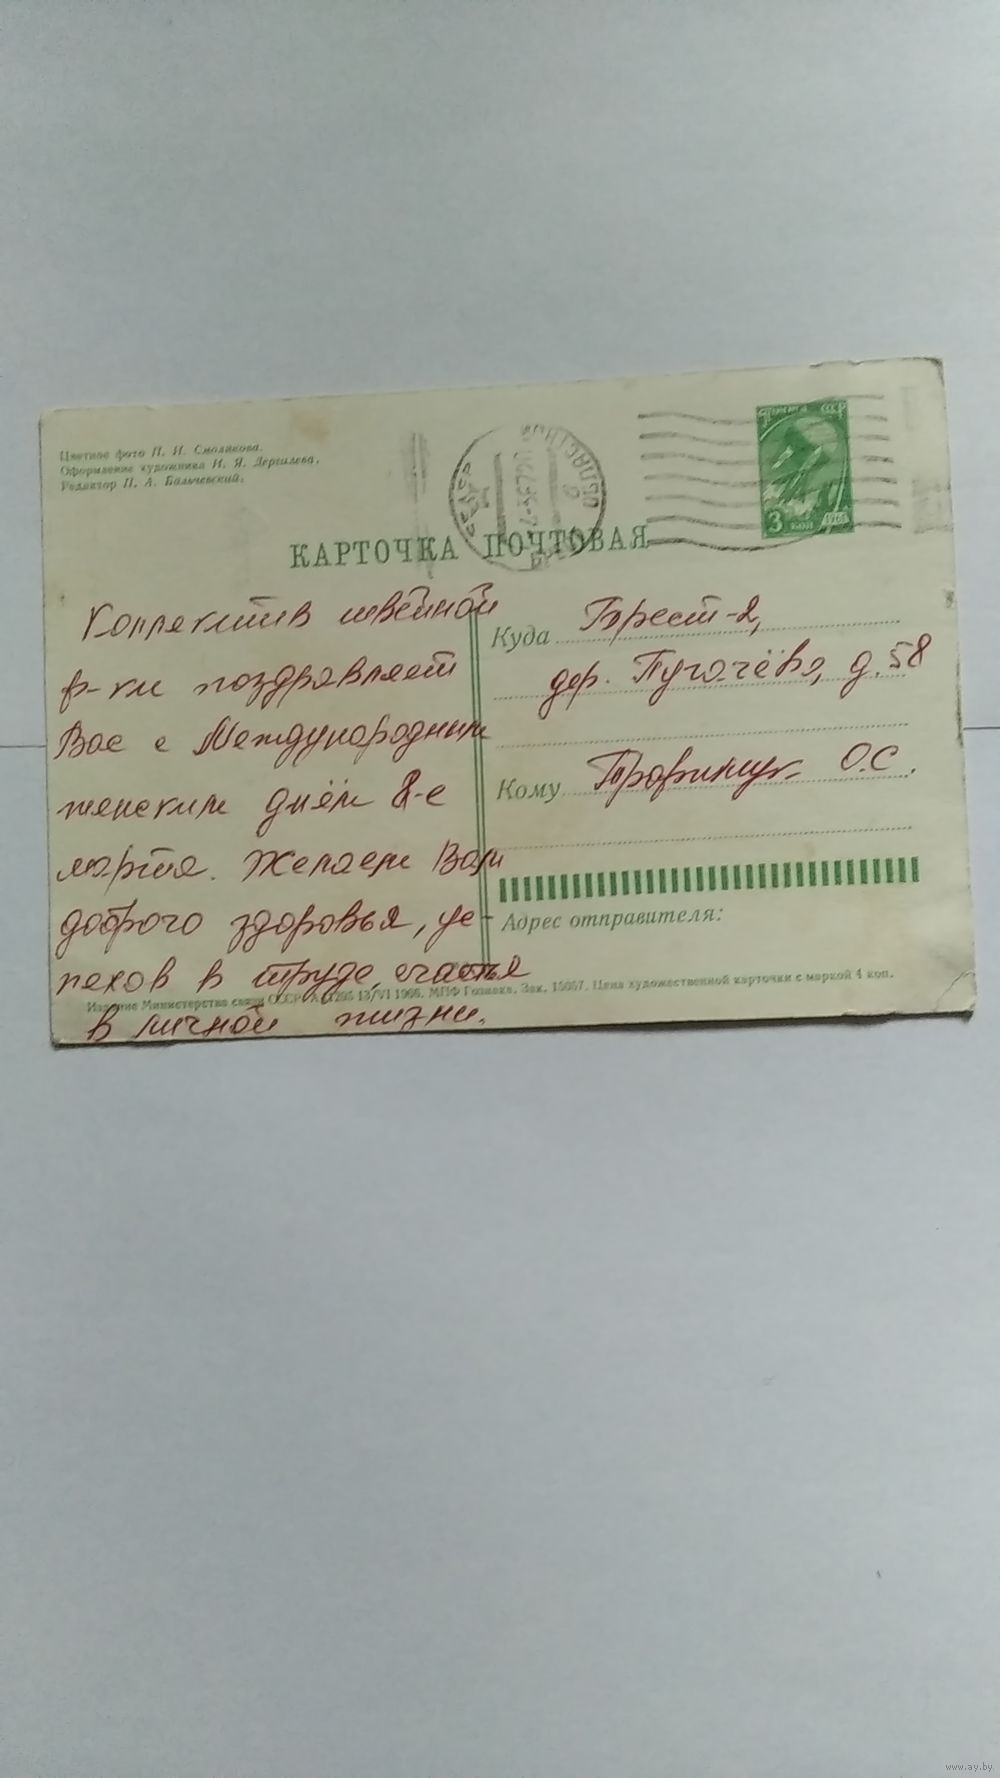 Цветное фото П. И. Смолякова.
Оформление художника И. Я. Дергилева.
Редактор П. А. Бальчевский.
КАРТОЧКА ПОЧТОВАЯ
3 коп 1961
Коллектив швейной
ф-ки поздравляет
Вас с Международным
женским днём 8-е
марта. Желаем Вам
доброго здоровья, ус-
пехов в труде, счастья
в личной жизни.
Куда Брест-2,
дер. Пугачёво, д. 58
Кому Трофимук О.С.
Адрес отправителя:
Издание Министерства связи СССР 13/VI 1966. МПФ Гознака. Зак. 15057. Цена художественной карточки с маркой 4 коп.
www.ay.by